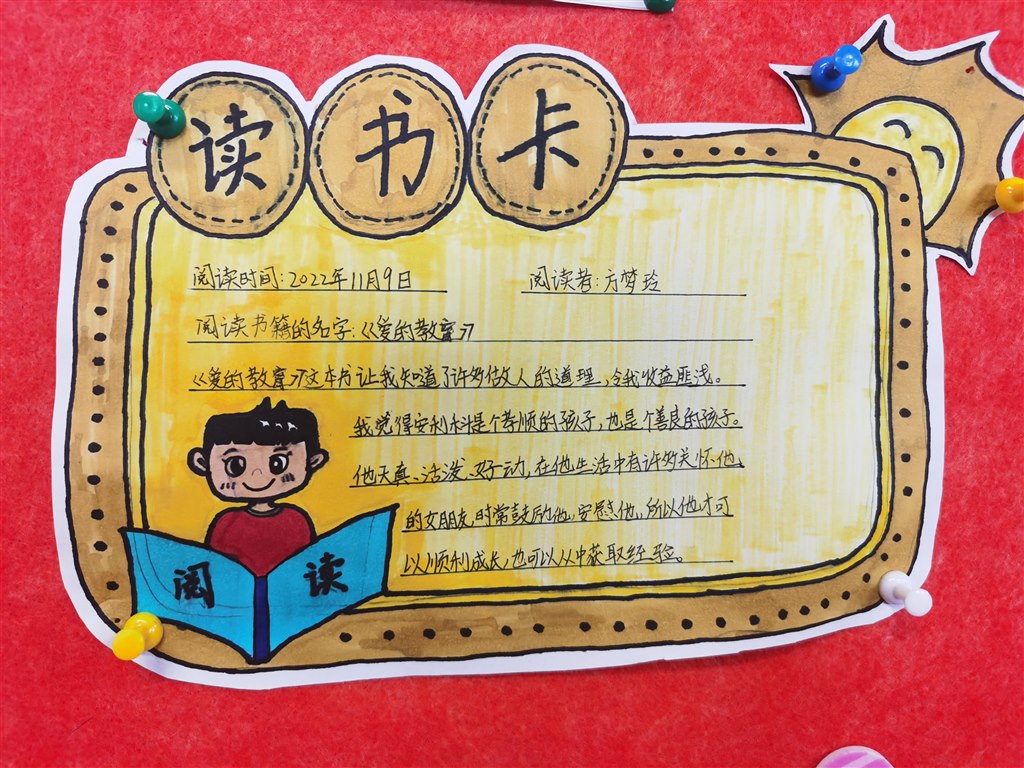 读书卡
阅读时间:2022年11月9日 阅读者:方梦玲
阅读书籍的名字:《爱的教育》
《爱的教育》这本书让我知道了许多做人的道理,令我收益匪浅。
我觉得安利科是个孝顺的孩子,也是个善良的孩子。
他天真、活泼、好动,在他生活中有许多关怀他
的女朋友,时常鼓励他,安慰他,所以他才可
以顺利成长,也可以从中获取经验。
阅读